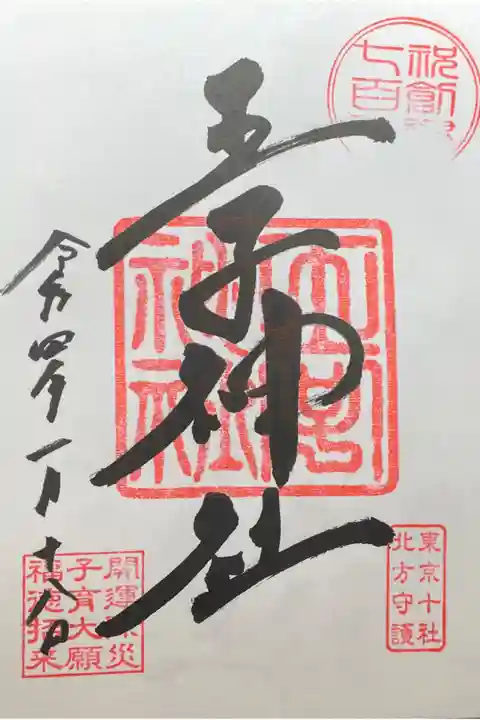 祝創
七百
王子神社
令和四年一月十八日
東京十社
北方守護
開運除災
子育大願
福徳招来